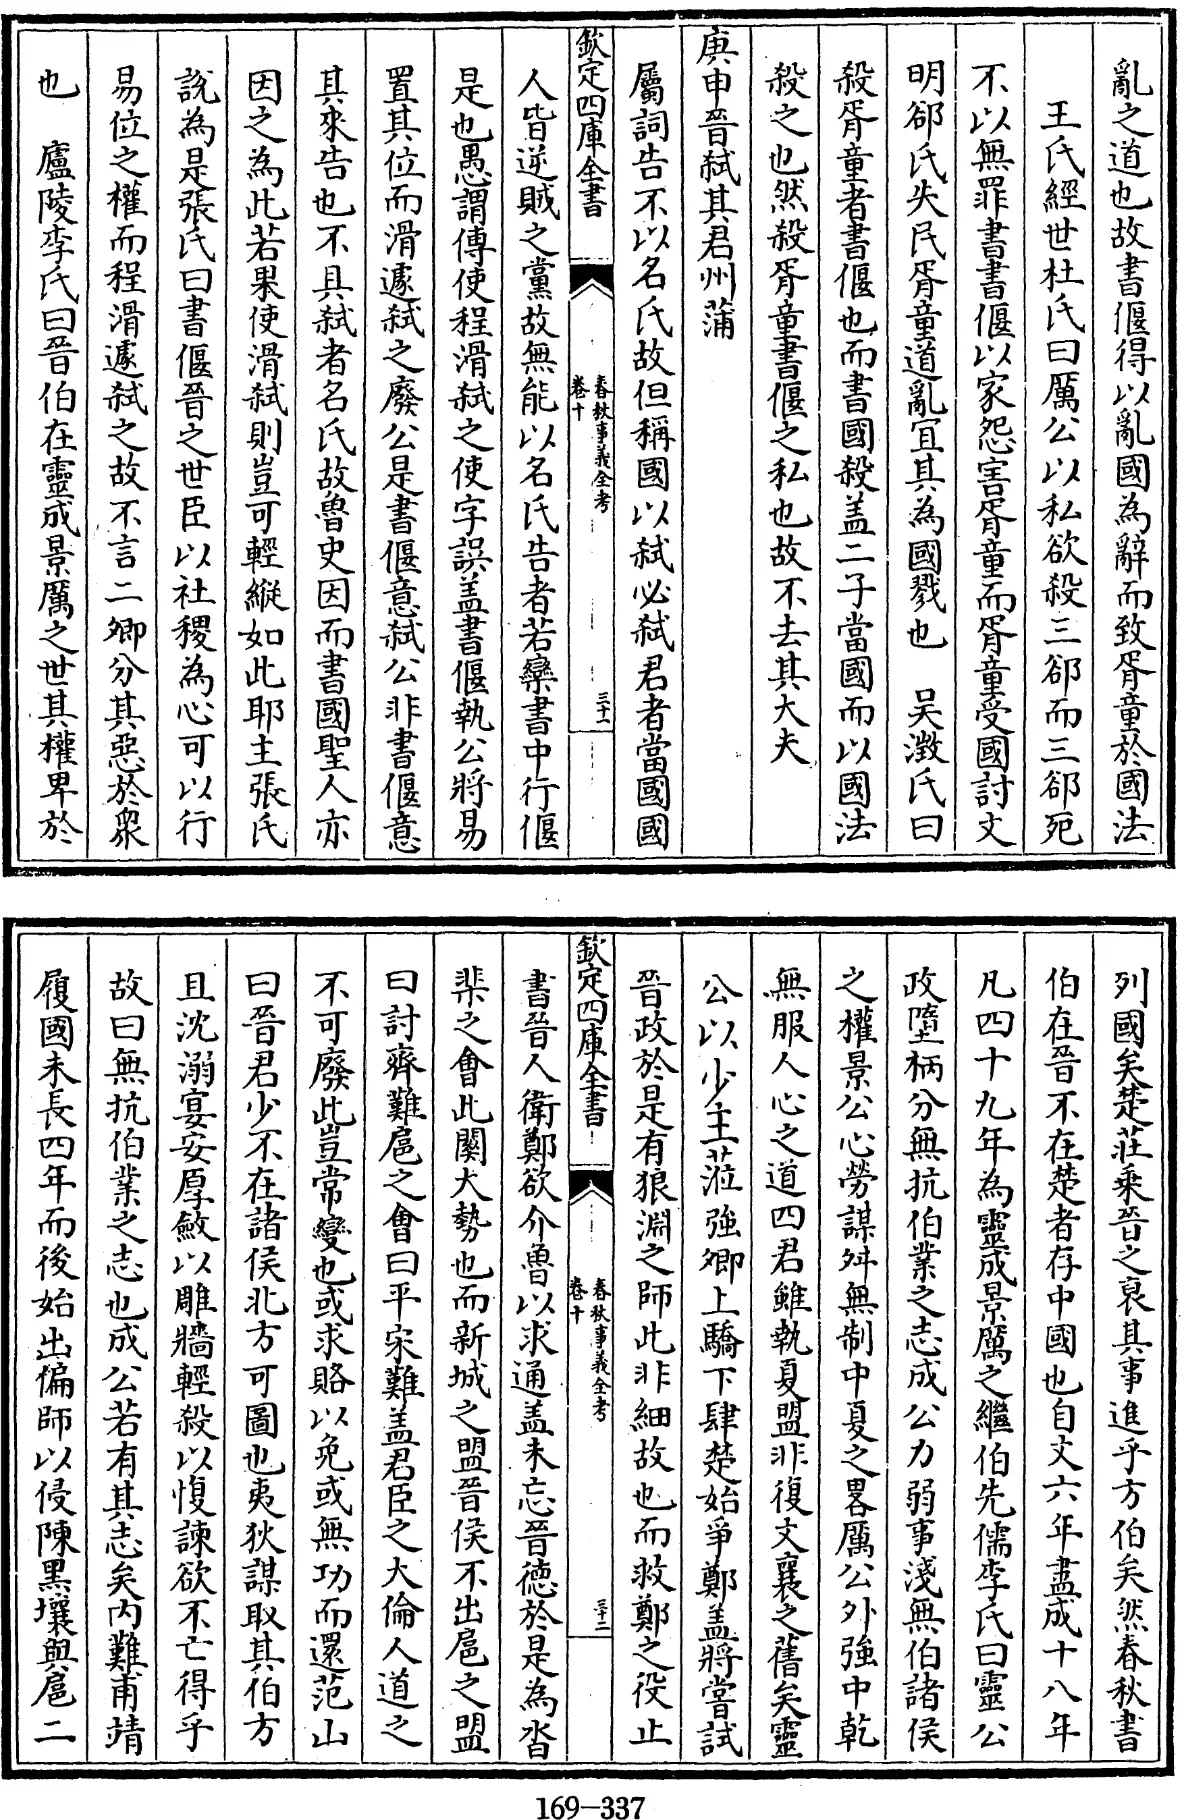 亂之道也故書偃得以亂國為辭而致胥童於國法
王氏經世杜氏曰厲公以私欲殺三郤而三郤死
不以無罪書書偃以家怨害胥童而胥童受國討文
明郤氏失民胥童道亂宜其為國戮也　吳澂氏曰
殺胥童者書偃也而書國殺盖二子當國而以國法
殺之也然殺胥童書偃之私也故不去其大夫
庚申晉弑其君州蒲
屬詞告不以名氏故但稱國以弑必弑君者當國國
欽定四庫全書
春秋事義全考
卷十
三十一
人皆逆賊之黨故無能以名氏告者若欒書中行偃
是也愚謂傳使程滑弑之使字誤盖書偃執公將易
置其位而滑遽弑之廢公是書偃意弑公非書偃意
其來告也不具弑者名氏故魯史因而書國聖人亦
因之為此若果使滑弑則豈可輕縱如此耶主張氏
說為是張氏曰書偃晉之世臣以社稷為心可以行
易位之權而程滑遽弑之故不言二卿分其惡於眾
也　廬陵李氏曰晉伯在靈成景厲之世其權卑於
列國矣楚莊乘晉之衰其事進乎方伯矣然春秋書
伯在晉不在楚者存中國也自文六年盡成十八年
凡四十九年為靈成景厲之繼伯先儒李氏曰靈公
政墮柄分無抗伯業之志成公力弱事淺無伯諸侯
之權景公心勞謀舛無制中夏之畧厲公外強中乾
無服人心之道四君雖執夏盟非復文襄之舊矣靈
公以少主涖強卿上驕下肆楚始爭鄭盖將嘗試
晉政於是有狼淵之師此非細故也而救鄭之役止
欽定四庫全書
春秋事義全考
卷十
三十二
書晉人衛鄭欲介魯以求通盖未忘晉德於是為沓
棐之會此關大勢也而新城之盟晉侯不出扈之盟
曰討齊難扈之會曰平宋難盖君臣之大倫人道之
不可廢此豈常變也或求賂以免或無功而還范山
曰晉君少不在諸侯北方可圖也夷狄謀取其伯方
且沈溺宴安厚斂以雕牆輕殺以愎諫欲不亡得乎
故曰無抗伯業之志也成公若有其志矣内難甫靖
履國未長四年而後始出偏師以侵陳黑壤與扈二
169-337